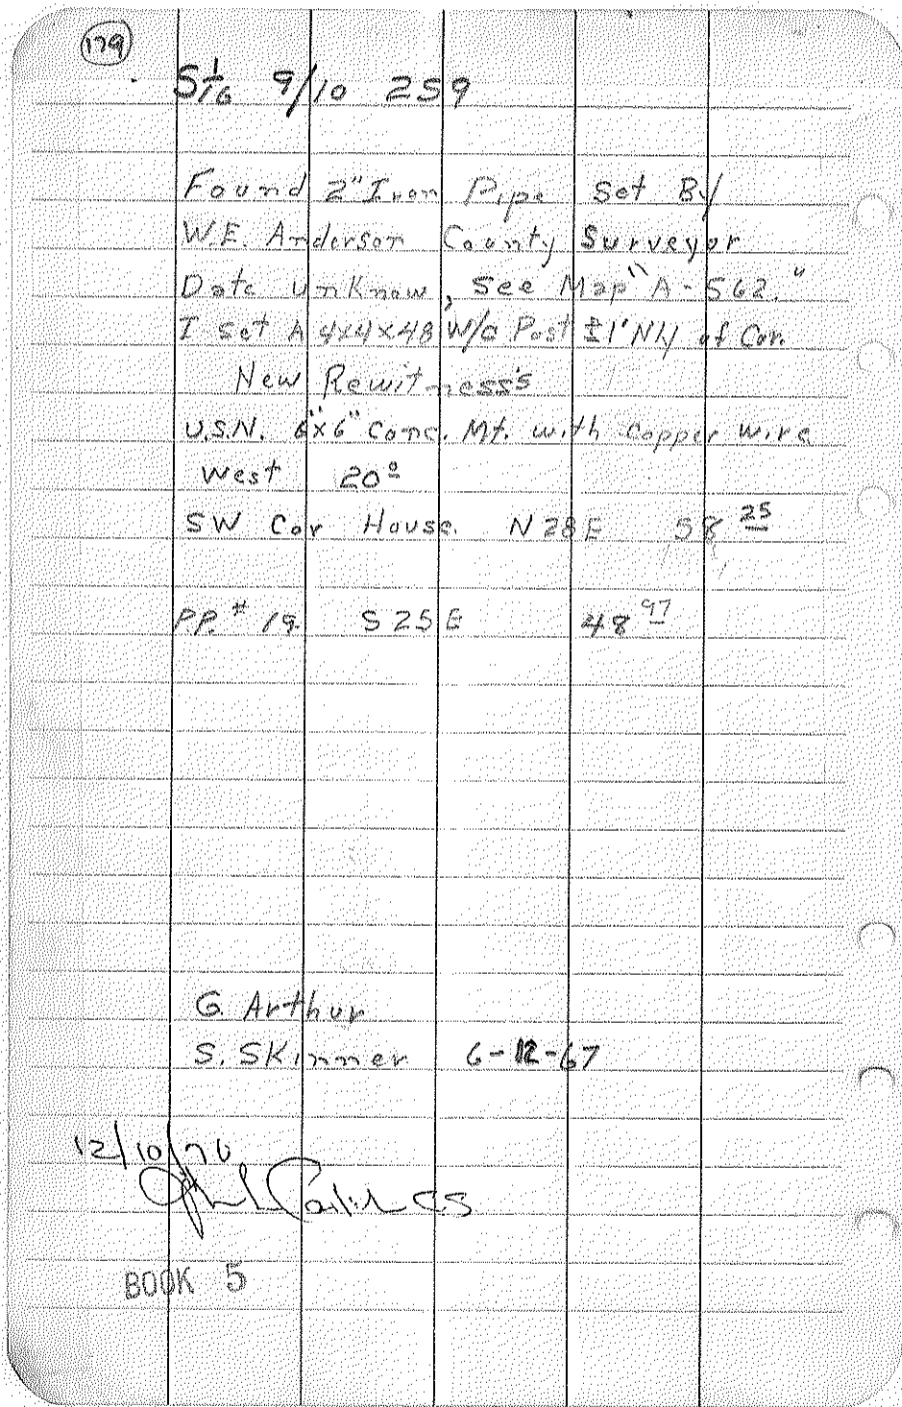 179
S 1/16 9/10 2S9
Found 2" Iron Pipe Set By
W.E. Anderson County Surveyor
Date unKnow, See Map "A-562."
I set A 4x4x48 W/a Post ±1' NLY of Cor.
New Rewitness's
U.S.N. 6"x6" Conc. Mt. with Copper Wire
West 20º
SW Cor House. N28E 58 25
PP. # 19 S25E 48 97
G. Arthur
S. SKinner 6-12-67
12/10/76
CS
BOOK 5